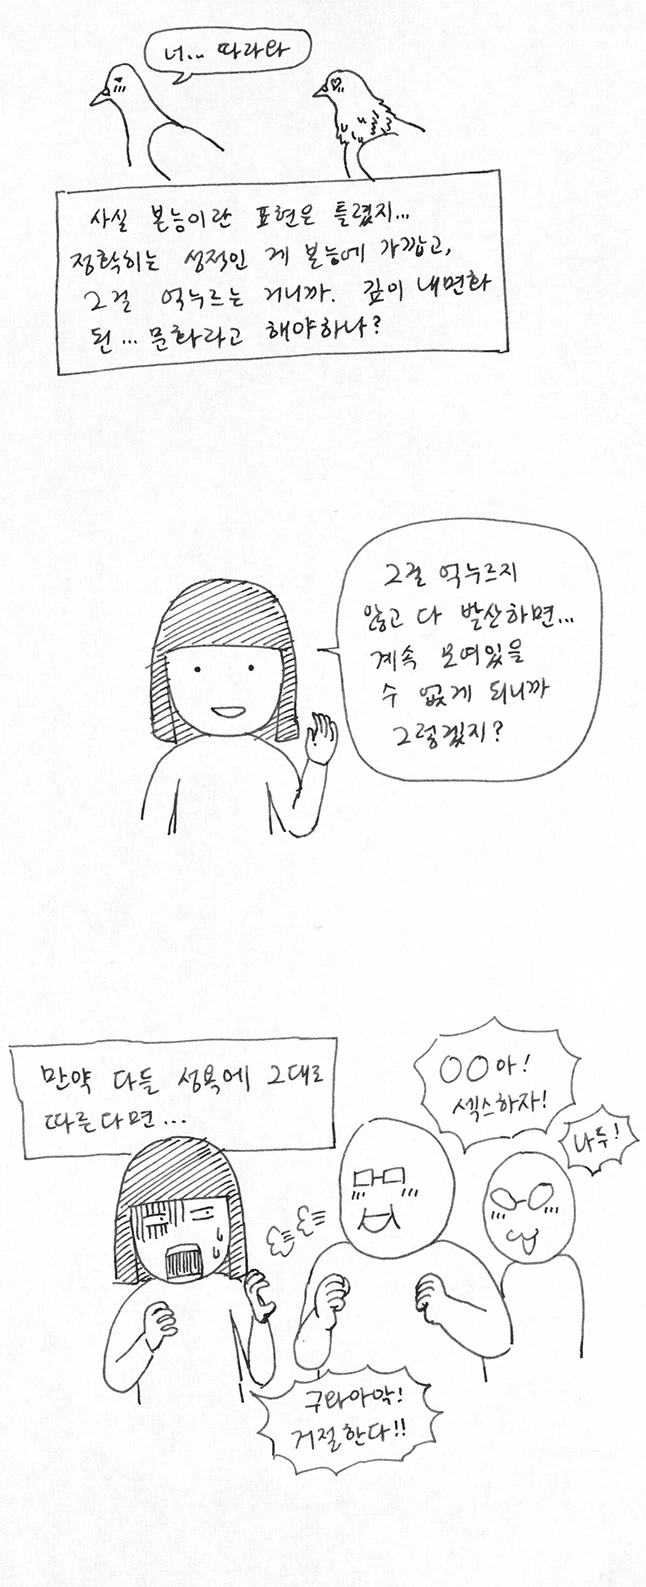 너... 따라와
사실 본능이란 표현은 틀렸지...
정확히는 성적인 게 본능에 가깝고,
그걸 억누르는 거니까. 깊이 내면화
된... 문화라고 해야하나?
그걸 억누르지
않고 다 발산하면...
계속 모여있을
수 없게 되니까
그렇겠지?
만약 다들 성욕에 그대로
따른다면...
○○아!
섹스하자!
나두!
구와아악!
거절한다!!